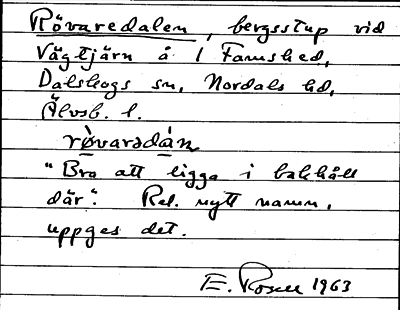 Rövaredalen, bergsstup vid
Vägtjärn å l Famshed,
Dalskogs sn, Nordals hd,
Älvsb. l.
rø̀varadán
"Bra att ligga i bakhåll
där". Rel. nytt namn,
uppges det.
E. Rosell 1963